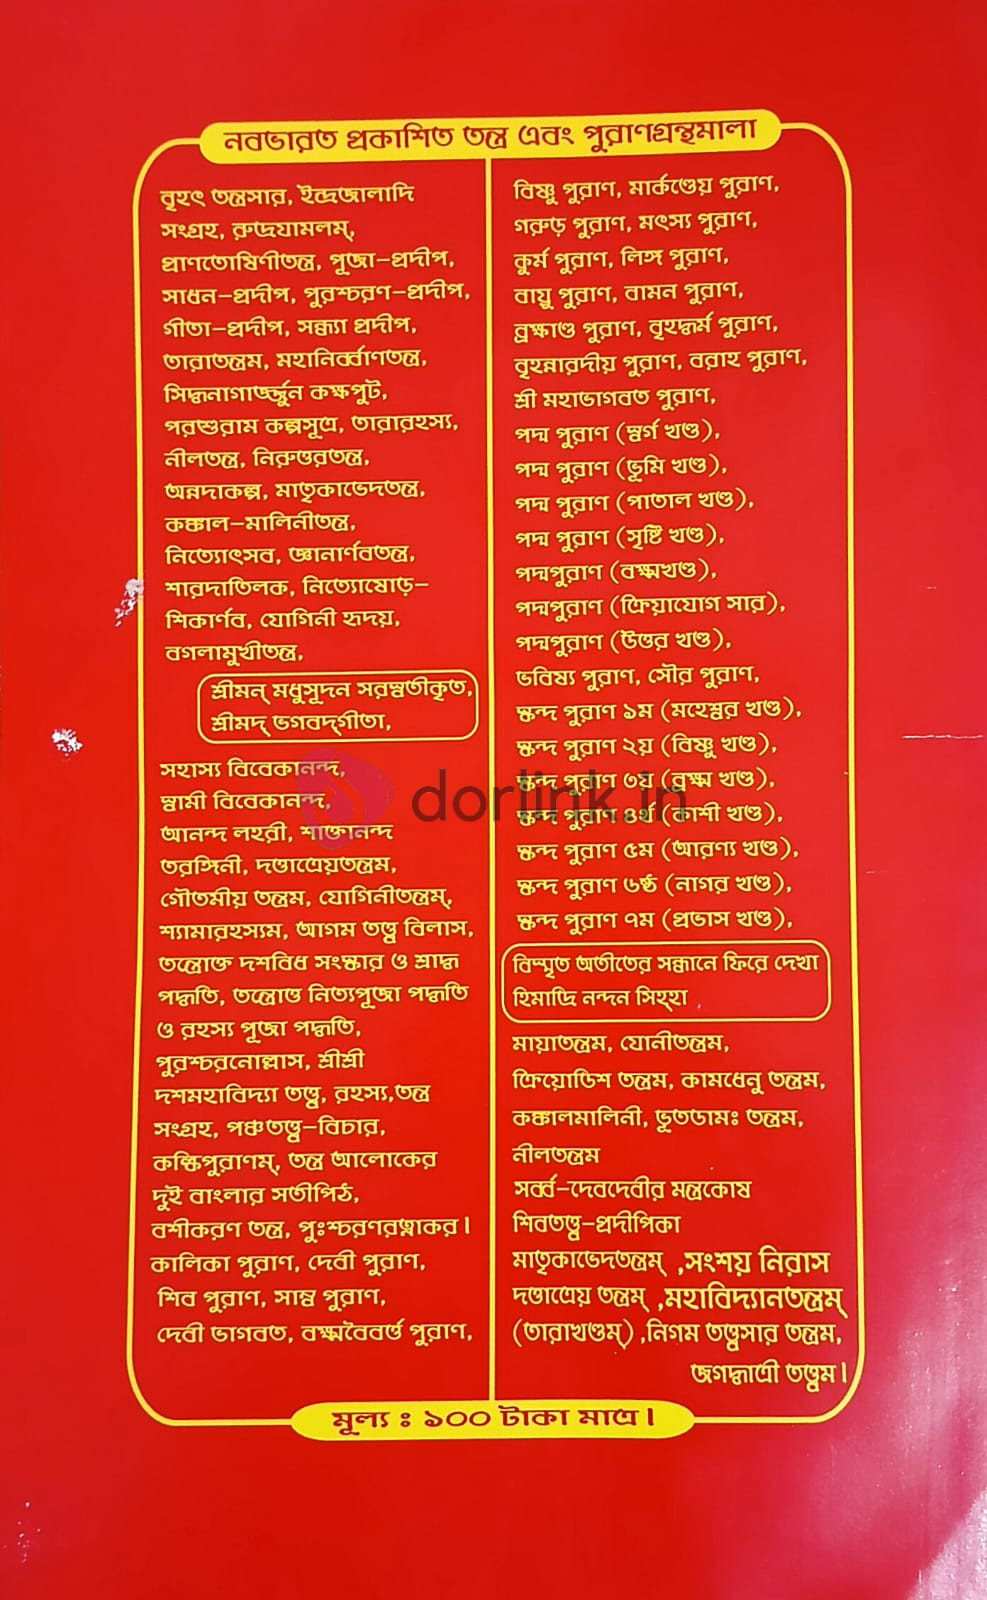 নবভারত প্রকাশিত তন্ত্র এবং পুরাণগ্রন্থমালা
বৃহৎ তন্ত্রসার, ইন্দ্রজালাদি
সংগ্রহ, রুদ্রযামলম্,
প্রাণতোষিণীতন্ত্র, পূজা-প্রদীপ,
সাধন-প্রদীপ, পুরশ্চরণ-প্রদীপ,
গীতা-প্রদীপ, সন্ধ্যা প্রদীপ,
তারাতন্ত্রম, মহানির্ব্বাণতন্ত্র,
সিদ্ধনাগার্জ্জুন কক্ষপুট,
পরশুরাম কল্পসূত্র, তারারহস্য,
নীলতন্ত্র, নিরুত্তরতন্ত্র,
অন্নদাকল্প, মাতৃকাভেদতন্ত্র,
কঙ্কাল-মালিনীতন্ত্র,
নিত্যোৎসব, জ্ঞানার্ণবতন্ত্র,
শারদাতিলক, নিত্যোষোড়-
শিকার্ণব, যোগিনী হৃদয়,
বগলামুখীতন্ত্র,
শ্রীমন্ মধুসূদন সরস্বতীকৃত,
শ্রীমদ্ ভগবদ্‌গীতা,
সহাস্য বিবেকানন্দ,
স্বামী বিবেকানন্দ,
আনন্দ লহরী, শাক্তানন্দ
তরঙ্গিনী, দত্তাত্রেয়তন্ত্রম,
গৌতমীয় তন্ত্রম, যোগিনীতন্ত্রম্,
শ্যামারহস্যম, আগম তত্ত্ব বিলাস,
তন্ত্রোক্ত দশবিধ সংস্কার ও শ্রাদ্ধ
পদ্ধতি, তন্ত্রোক্ত নিত্যপূজা পদ্ধতি
ও রহস্য পূজা পদ্ধতি,
পুরশ্চরনোল্লাস, শ্রীশ্রী
দশমহাবিদ্যা তত্ত্ব, রহস্য,তন্ত্র
সংগ্রহ, পঞ্চতত্ত্ব-বিচার,
কল্কিপুরাণম্, তন্ত্র আলোকের
দুই বাংলার সতীপিঠ,
বশীকরণ তন্ত্র, পুঃশ্চরণরত্নাকর।
কালিকা পুরাণ, দেবী পুরাণ,
শিব পুরাণ, সাম্ব পুরাণ,
দেবী ভাগবত, ব্রহ্মবৈবর্ত্ত পুরাণ,
বিষ্ণু পুরাণ, মার্কণ্ডেয় পুরাণ,
গরুড় পুরাণ, মৎস্য পুরাণ,
কুর্ম পুরাণ, লিঙ্গ পুরাণ,
বায়ু পুরাণ, বামন পুরাণ,
ব্রহ্মাণ্ড পুরাণ, বৃহদ্ধর্ম পুরাণ,
বৃহন্নারদীয় পুরাণ, বরাহ পুরাণ,
শ্রী মহাভাগবত পুরাণ,
পদ্ম পুরাণ (স্বর্গ খণ্ড),
পদ্ম পুরাণ (ভূমি খণ্ড),
পদ্ম পুরাণ (পাতাল খণ্ড),
পদ্ম পুরাণ (সৃষ্টি খণ্ড),
পদ্মপুরাণ (ব্রহ্মখণ্ড),
পদ্মপুরাণ (ক্রিয়াযোগ সার),
পদ্মপুরাণ (উত্তর খণ্ড),
ভবিষ্য পুরাণ, সৌর পুরাণ,
স্কন্দ পুরাণ ১ম (মহেশ্বর খণ্ড),
স্কন্দ পুরাণ ২য় (বিষ্ণু খণ্ড),
স্কন্দ পুরাণ ৩য় (ব্রহ্ম খণ্ড),
স্কন্দ পুরাণ ৪র্থ (কাশী খণ্ড),
স্কন্দ পুরাণ ৫ম (আরণ্য খণ্ড),
স্কন্দ পুরাণ ৬ষ্ঠ (নাগর খণ্ড),
স্কন্দ পুরাণ ৭ম (প্রভাস খণ্ড),
বিস্মৃত অতীতের সন্ধানে ফিরে দেখা
হিমাদ্রি নন্দন সিহ্হা
মায়াতন্ত্রম, যোনীতন্ত্রম,
ক্রিয়োডিশ তন্ত্রম, কামধেনু তন্ত্রম,
কঙ্কালমালিনী, ভূতডামঃ তন্ত্রম,
নীলতন্ত্রম
সর্ব্ব-দেবদেবীর মন্ত্রকোষ
শিবতত্ত্ব-প্রদীপিকা
মাতৃকাভেদতন্ত্রম্ ,সংশয় নিরাস
দত্তাত্রেয় তন্ত্রম্ ,মহাবিদ্যানতন্ত্রম্
(তারাখণ্ডম্) ,নিগম তত্ত্বসার তন্ত্রম,
জগদ্ধাত্রী তত্ত্বম।
মূল্য ঃ ১০০ টাকা মাত্র।
dorlink.in